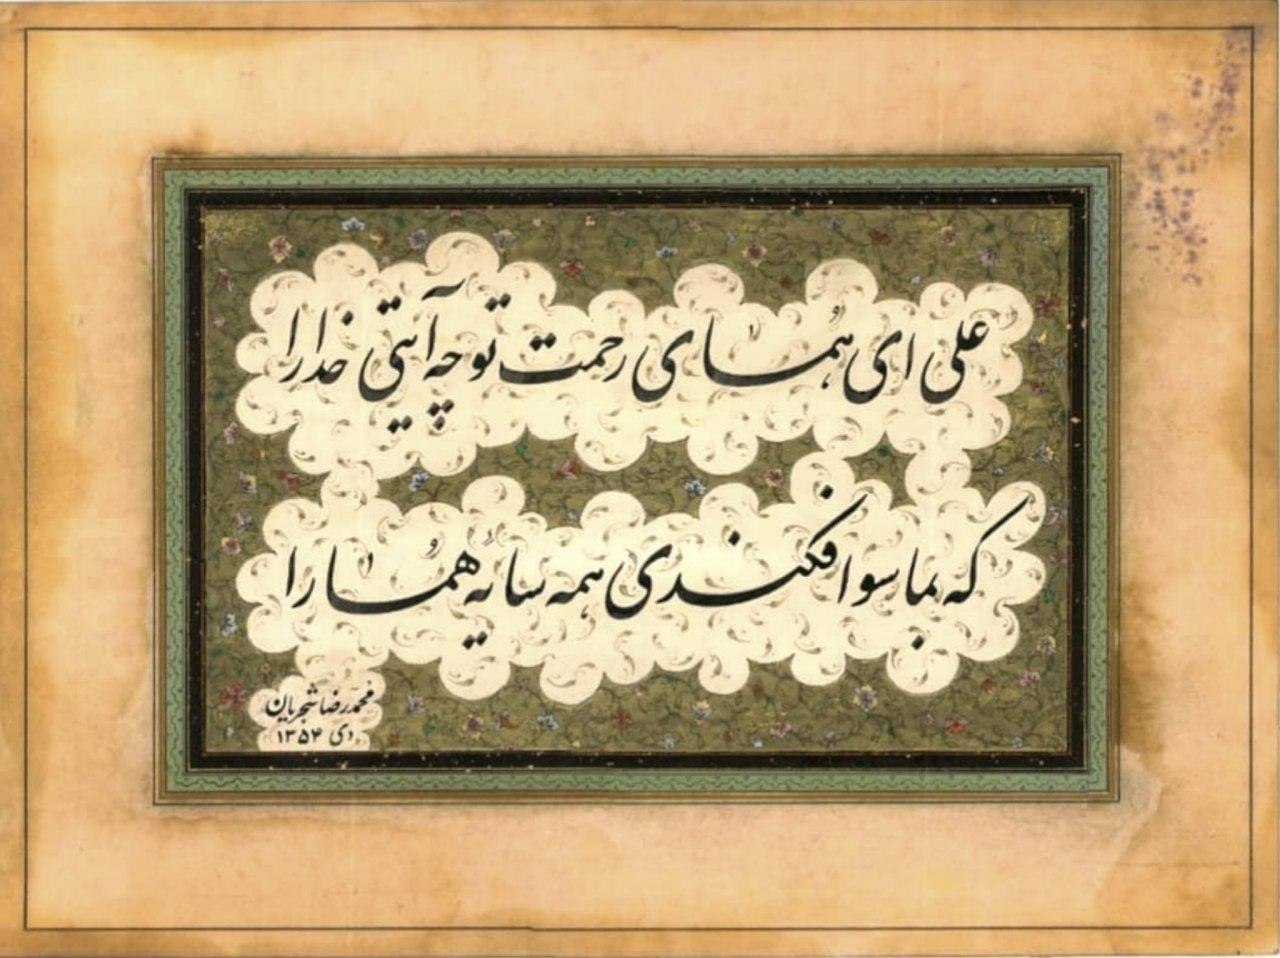 علی ای هُمای رحمت تو چه آیتی خدا را
که بما سوا فکندی همه سایهٔ هُما را
محمدرضا شجریان
دی ۱۳۵۴